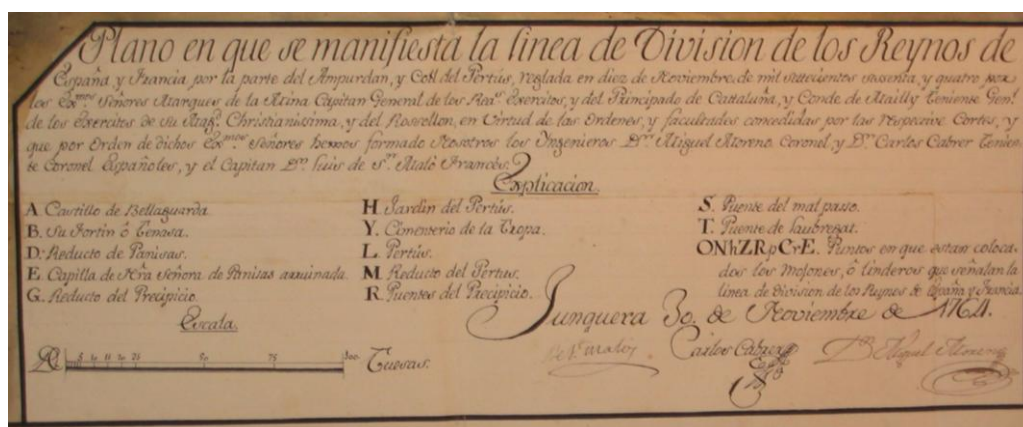 Plano en que se manifiesta la linea de Division de los Reynos de
España y Francia, por la parte del Ampurdan, y Coll del Pertús, reglada en diez de Noviembre, de mil settecientos sesenta, y quatro por
los Exmos Señores Marques de la Mina Capitan General de los Reas Exercitos, y del Principado de Cattaluña, y Conde de Mailly Teniente Genl
de los Exercitos de Su Magd Christianissima, y del Rossellon, en Virtud de las Ordenes, y facultades concedidas por las respective Cortes, y
que por Orden de dichos Exmos Señores hemos formado Nosotros los Ingenieros Dn Miguel Moreno Coronel, y Dn Carlos Cabrer Tenien
te Coronel Españoles, y el Capitan Dn Luis de Sn Malò Francès.
Explicacion.
A. Castillo de Bellaguarda.
B. Su Fortin ô Tenasa.
D. Reducto de Panisas.
E. Capilla de Ntra Señora de Panisas arruinada.
G. Reducto del Precipicio.
H. Jardin del Pertùs.
Y. Cimenterio de la Tropa.
L. Pertùs.
M. Reducto del Pertus.
R. Puentes del Precipicio.
S. Puente del mal passo.
T. Puente de Llubregat.
ONhZRpCrE. Puntos en que estan coloca
dos los Mojones, ô linderos que señalan la
linea de division de los Reynos de España y Francia.
Junquera 30. de Noviembre de 1764.
Escala.
5 10 15 20 25 50 75 100. Tuesas.
Carlos Cabrer
Dn Miguel Moreno